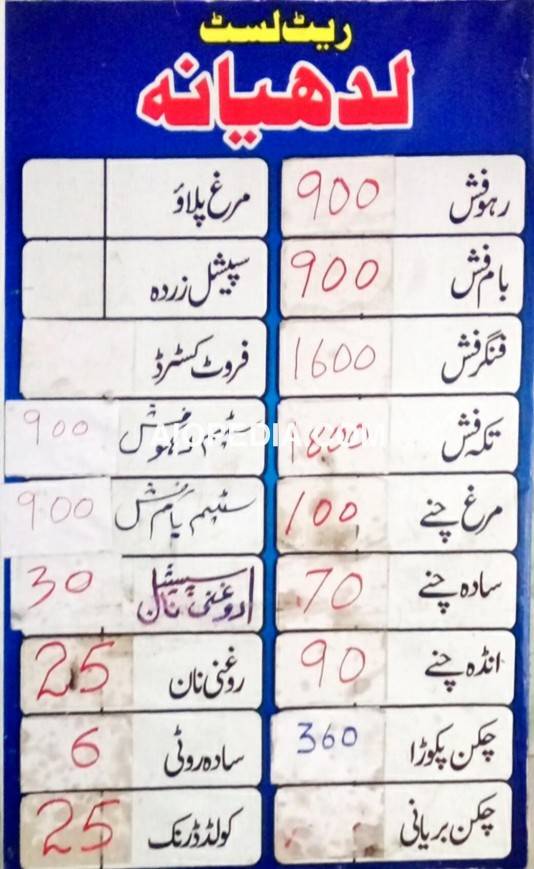 ریٹ لسٹ
لدھیانہ
رہو فش 900
بام فش 900
فنگر فش 1600
تکہ فش 1600
مرغ چنے 100
سادہ چنے 70
انڈہ چنے 90
چکن پکوڑا 360
چکن بریانی
مرغ پلاؤ
سپیشل زردہ
فروٹ کسٹرڈ
سٹیم رہو فش 900
سٹیم بام فش 900
سپیشل روغنی نان 30
روغنی نان 25
سادہ روٹی 6
کولڈ ڈرنک 25
AIOPEDIA.COM